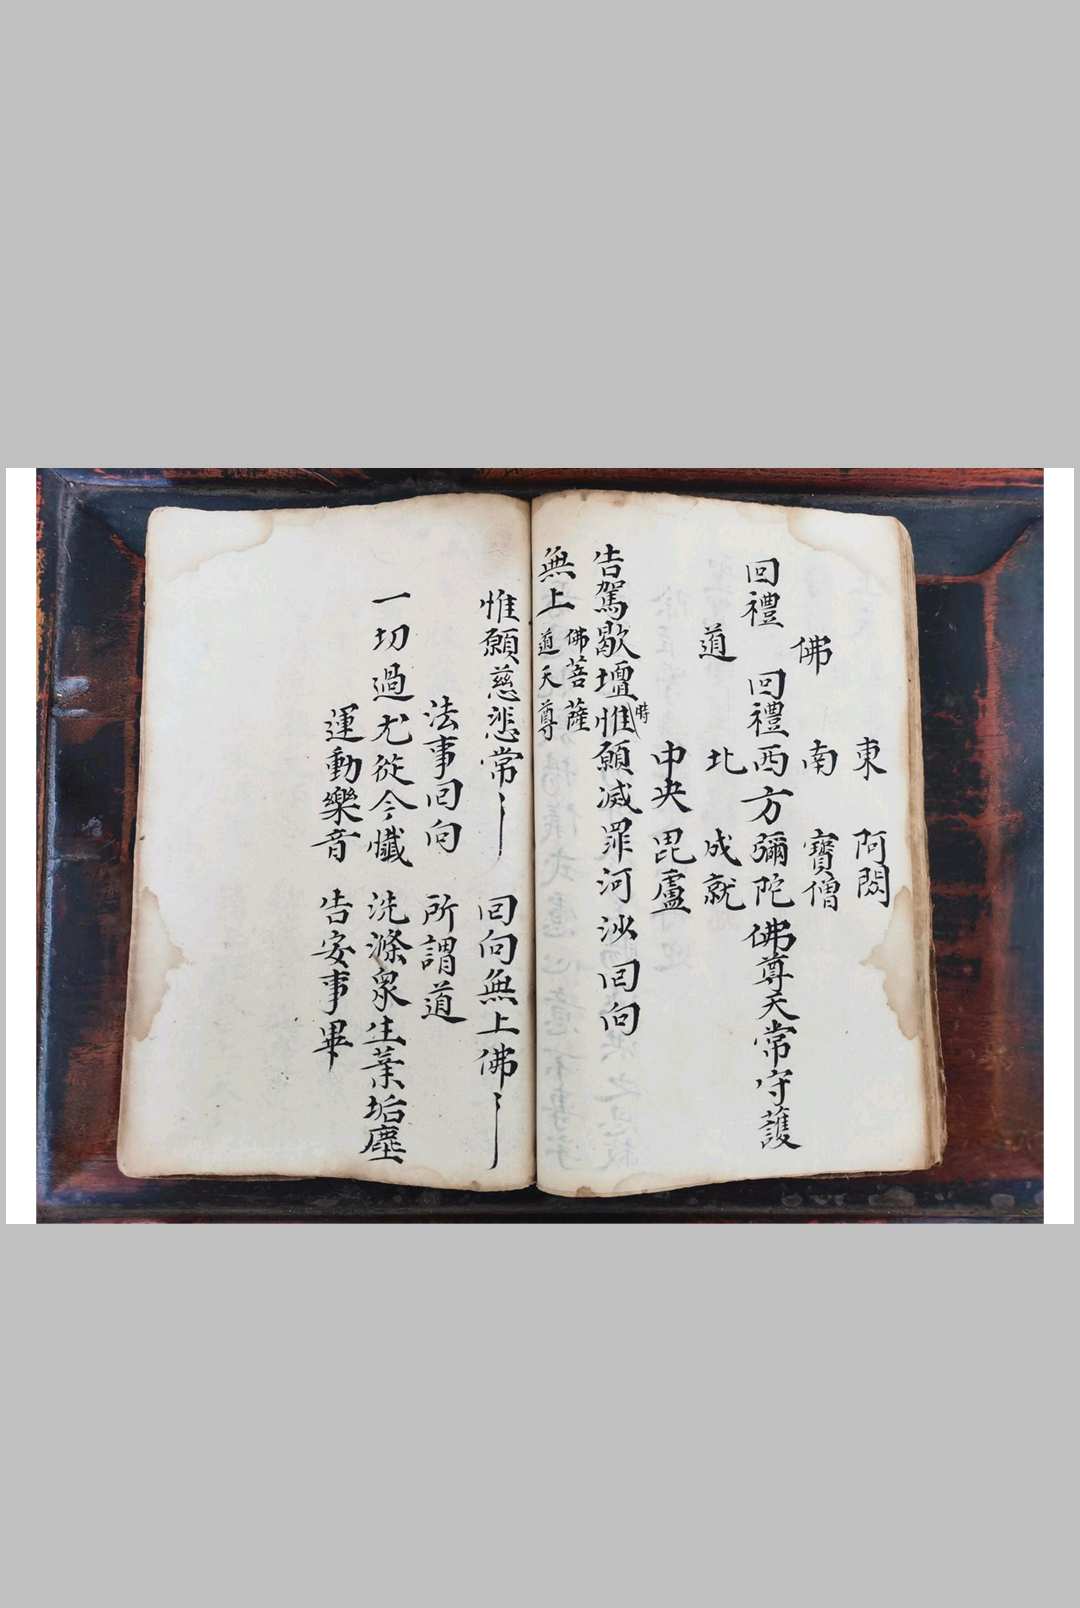 東　阿閦
佛　南　寶僧
回禮　回禮西方彌陀佛尊天常守護
道　北　成就
中央　毘盧
告駕歇壇時惟願滅罪河沙回向
無上佛菩薩
道天尊
惟願慈悲常〻　回向無上佛〻
法事回向　所謂道
一切過尤從今懺　洗滌眾生業垢塵
運動樂音　告安事畢